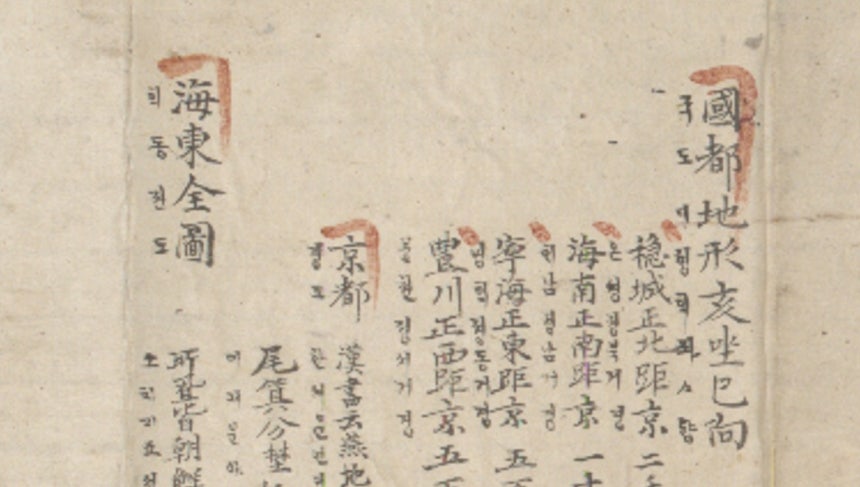 國都地形亥坐巳向
국도디형ᄒᆡ좌ᄉᆞ향
穩城正北距京二千
온셩졍북거경
海南正南距京一千
ᄒᆡ남졍남거경
寧海正東距京五百
녕ᄒᆡ졍동거경
豊川正西距京五百
풍쳔졍셔거경
京都
경도
漢書云燕地
한셔운연디
尾箕分埜
미긔분야
海東全圖
ᄒᆡ동젼도
所登皆朝鮮